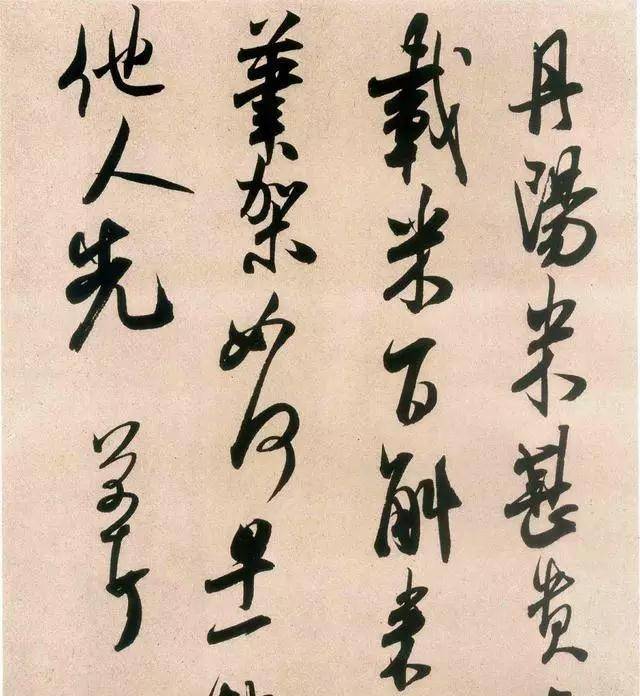 丹陽米甚貴
載米百斛来
筆架如何早一
他人先